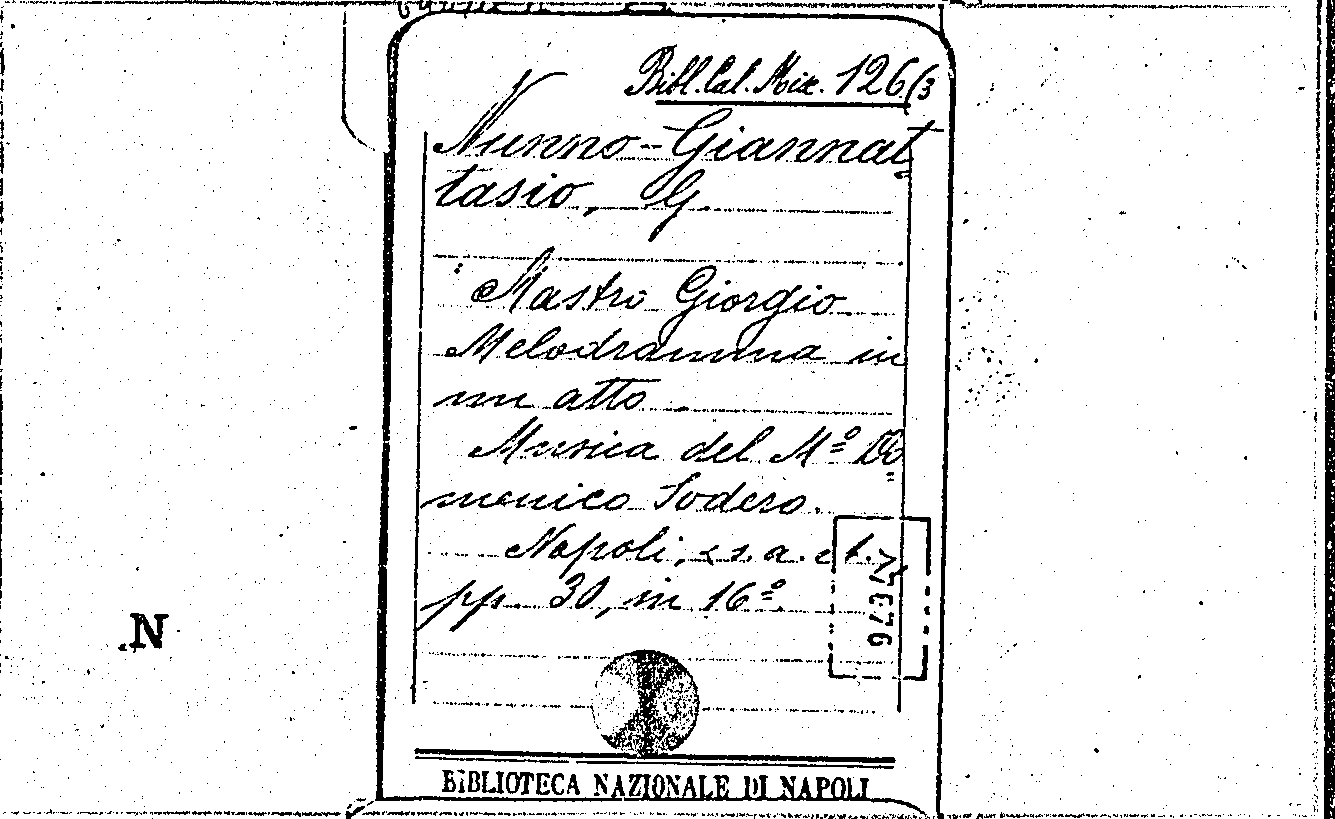 Bibl. Cal. Mix. 126(3
Nunno-Giannat
tasio, G.
Mastro Giorgio
Melodramma in
un atto.
Musica del M.º Do
menico Sodero.
Napoli, s. a. et.
pp. 30, in 16º.
N
BIBLIOTECA NAZIONALE DI NAPOLI